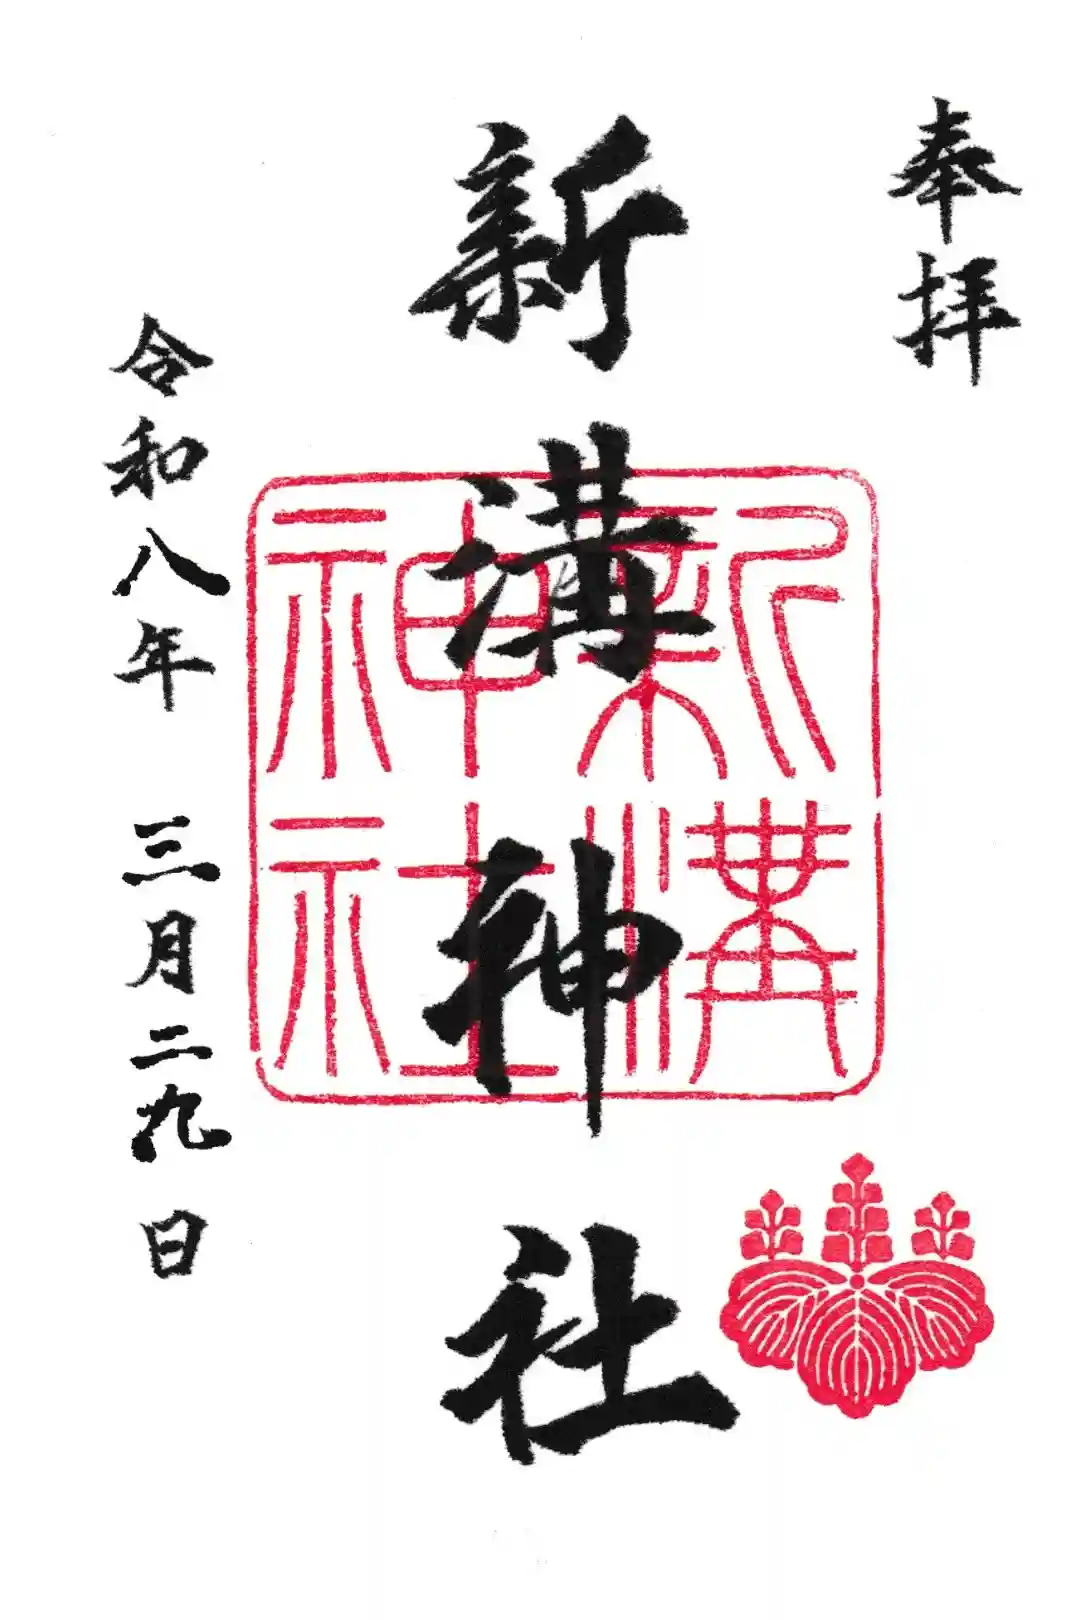 奉拝
新溝神社
新溝
神社
令和八年 三月二九日